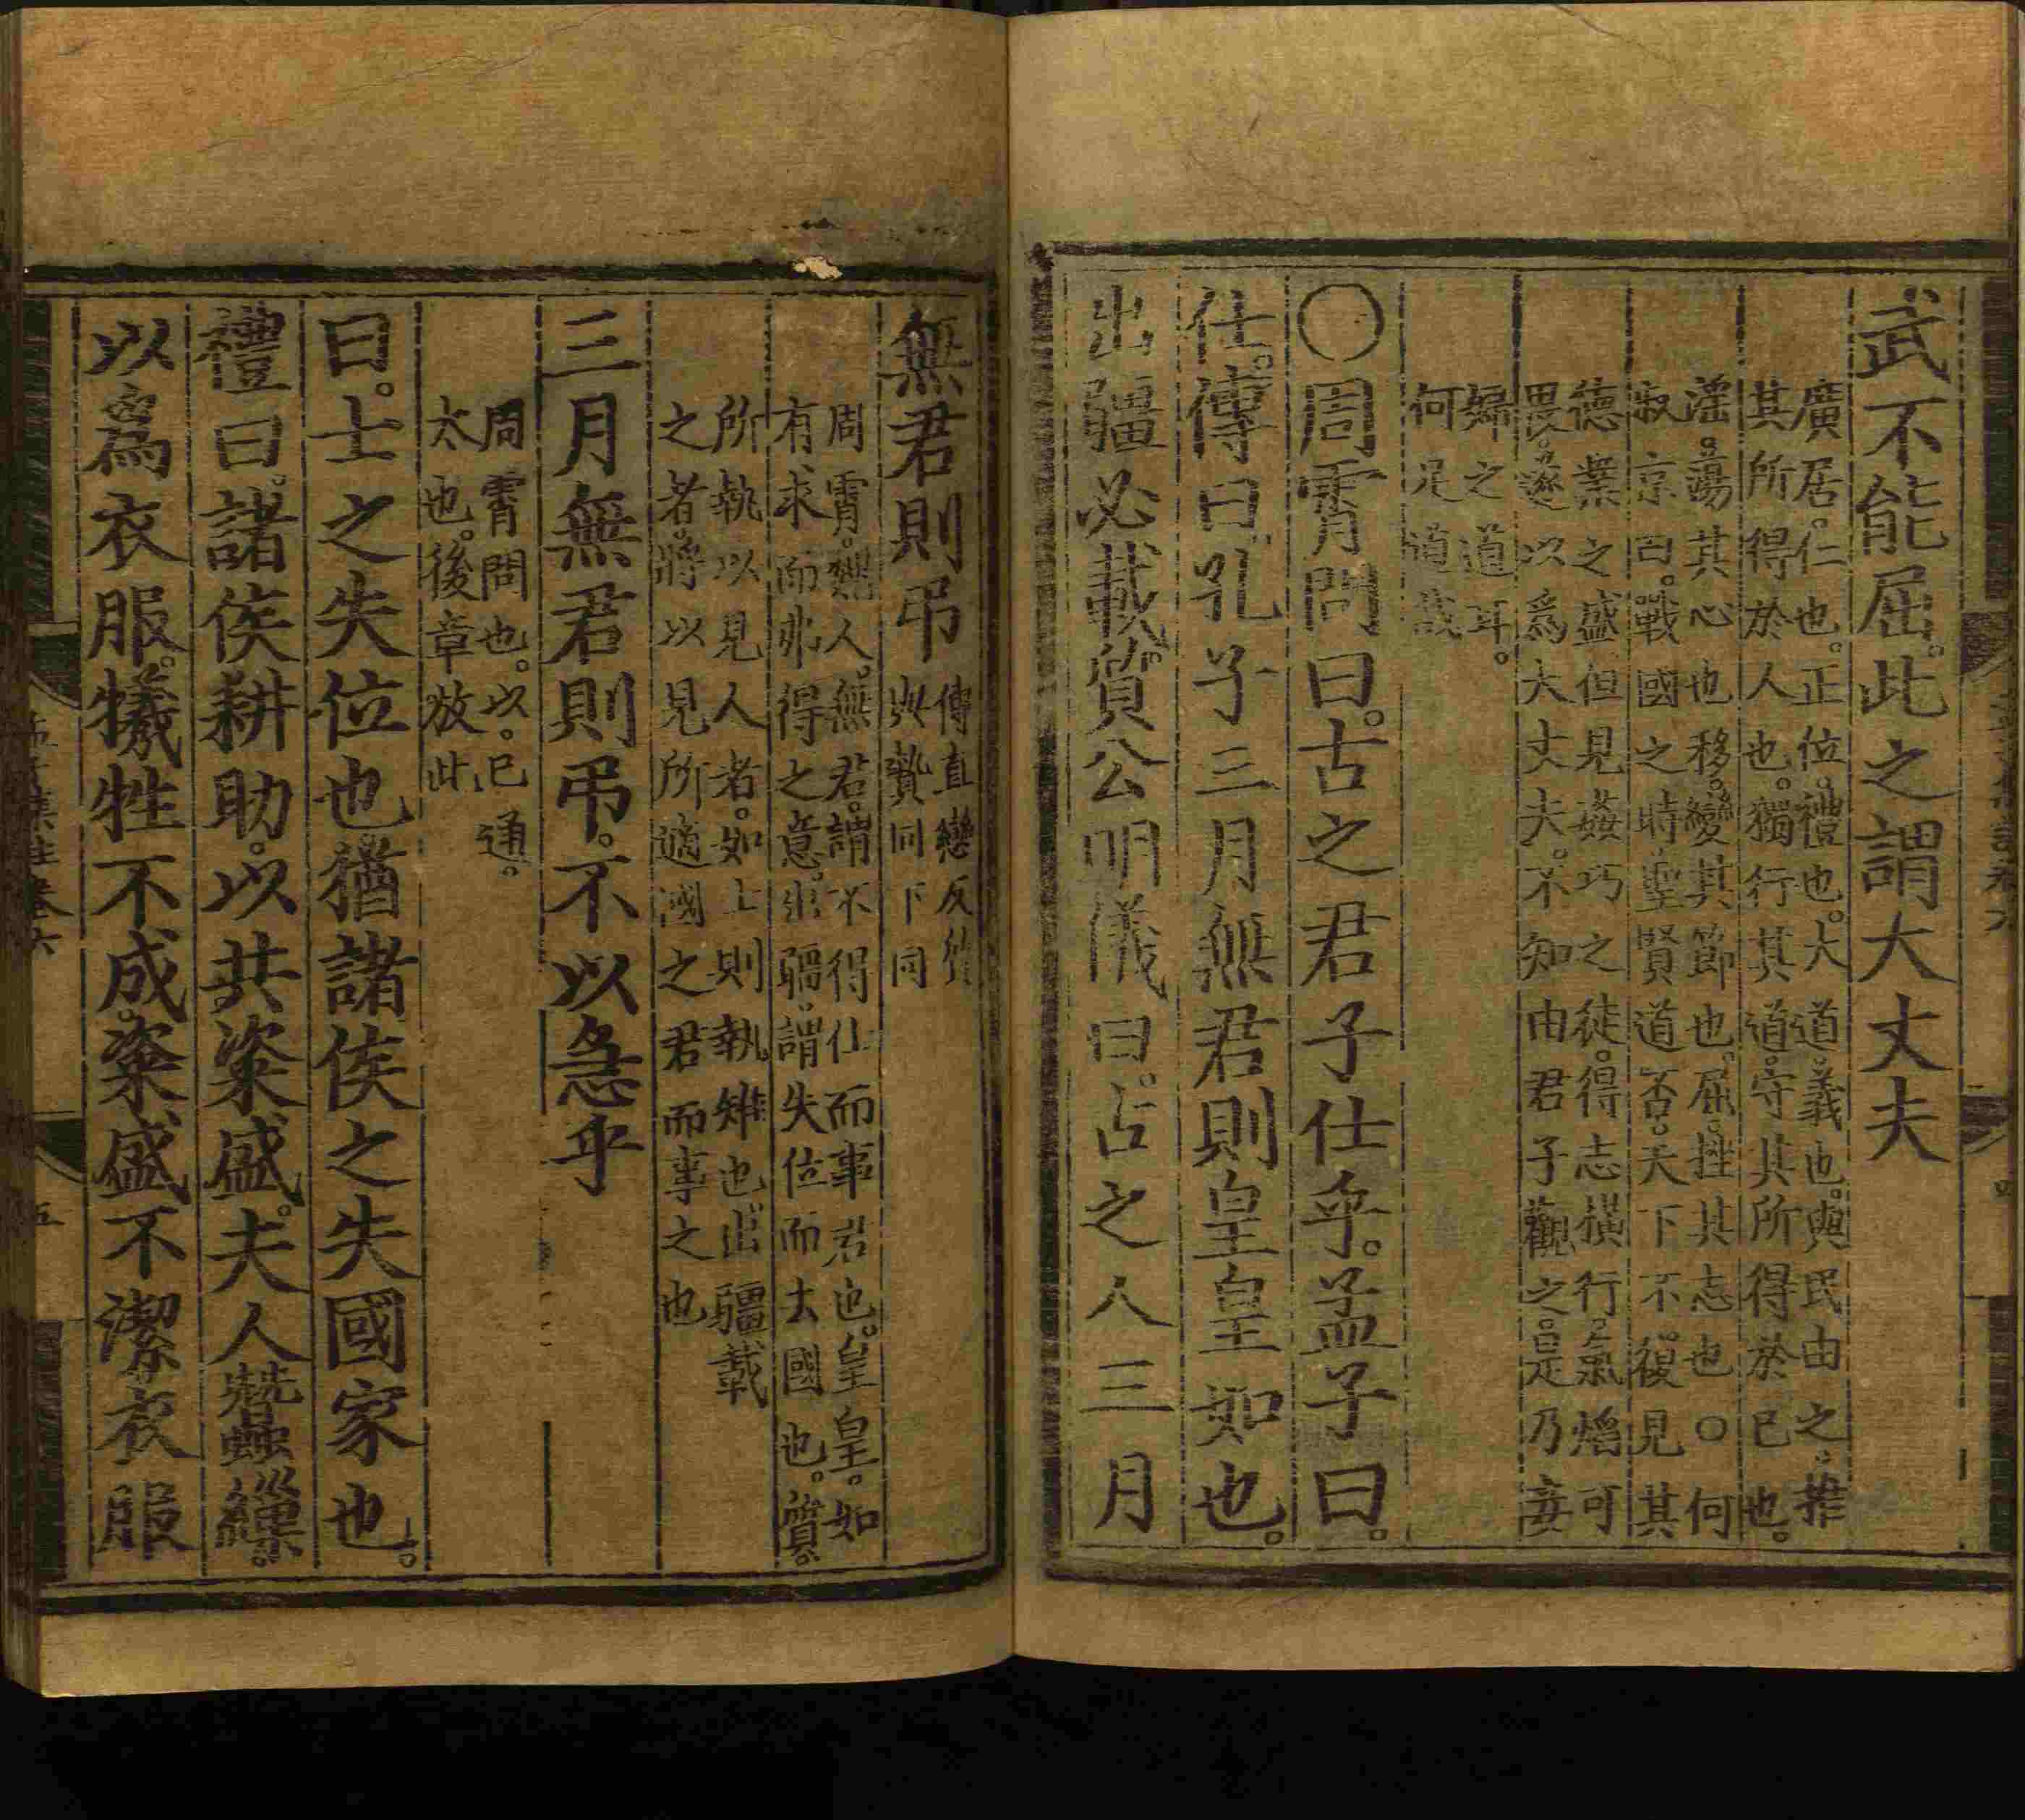 武不能屈。此之謂大丈夫
廣居。仁也。正位。禮也。大道。義也。與民由之。推
其所得於人也。獨行其道。守其所得於己也。
淫。蕩其心也。移。變其節也。屈。挫其志也。○何
叔京曰。戰國之時。聖賢道否。天下不復見其
德業之盛。但見姦巧之徒。得志橫行。氣焰可
畏。遂以爲大丈夫。不知由君子觀之。是乃妾
婦之道耳。
何足道哉
○周霄問曰。古之君子仕乎。孟子曰。
仕。傳曰。孔子三月無君則皇皇如也。
出疆必載質。公明儀曰。古之人三月
無君則弔
傳直戀反質
與贄同下同
周霄。魏人。無君。謂不得仕而事君也。皇皇。如
有求而弗得之意。出疆。謂失位而去國也。質。
所執以見人者。如士則執雉也。出疆載
之者。將以見所適國之君而事之也
三月無君則弔。不以急乎
周霄問也。以。已通。
太也。後章放此
曰。士之失位也。猶諸侯之失國家也。
禮曰。諸侯耕助。以共粢盛。夫人蠶繅。
以爲衣服。犧牲不成。粢盛不潔。衣服
孟子集註卷六
五